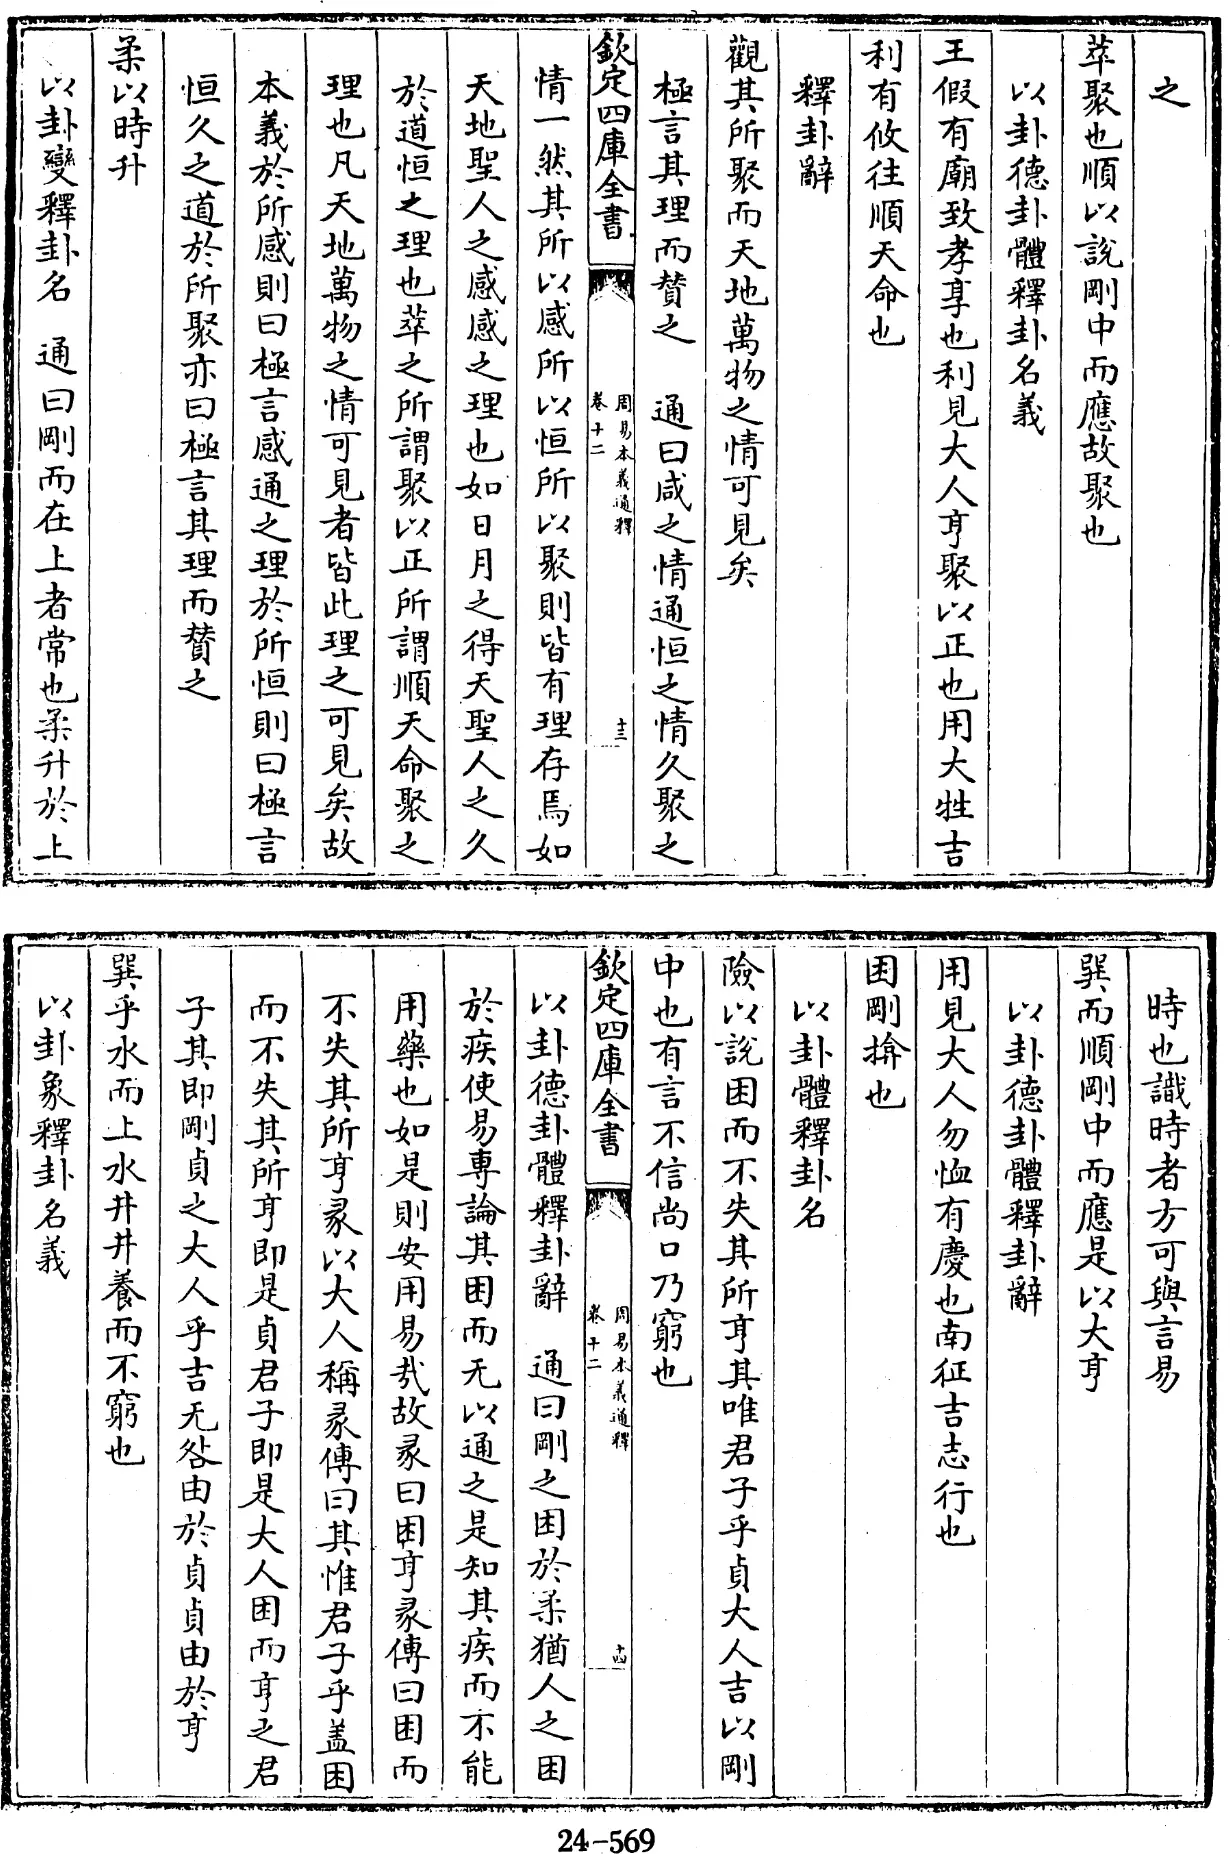 之
萃聚也順以說剛中而應故聚也
以卦德卦體釋卦名義
王假有廟致孝享也利見大人亨聚以正也用大牲吉
利有攸往順天命也
釋卦辭
觀其所聚而天地萬物之情可見矣
極言其理而贊之　通曰咸之情通恒之情久聚之
欽定四庫全書
周易本義通釋
卷十二
十三
情一然其所以感所以恒所以聚則皆有理存焉如
天地聖人之感感之理也如日月之得天聖人之久
於道恒之理也萃之所謂聚以正所謂順天命聚之
理也凡天地萬物之情可見者皆此理之可見矣故
本義於所感則曰極言感通之理於所恒則曰極言
恒久之道於所聚亦曰極言其理而贊之
柔以時升
以卦變釋卦名　通曰剛而在上者常也柔升於上
時也識時者方可與言易
巽而順剛中而應是以大亨
以卦德卦體釋卦辭
用見大人勿恤有慶也南征吉志行也
困剛揜也
以卦體釋卦名
險以說困而不失其所亨其唯君子乎貞大人吉以剛
中也有言不信尚口乃窮也
欽定四庫全書
周易本義通釋
卷十二
十四
以卦德卦體釋卦辭　通曰剛之困於柔猶人之困
於疾使易專論其困而无以通之是知其疾而不能
用藥也如是則安用易哉故彖曰困亨彖傳曰困而
不失其所亨彖以大人稱彖傳曰其惟君子乎蓋困
而不失其所亨即是貞君子即是大人困而亨之君
子其即剛貞之大人乎吉无咎由於貞貞由於亨
巽乎水而上水井井養而不窮也
以卦象釋卦名義
24-569